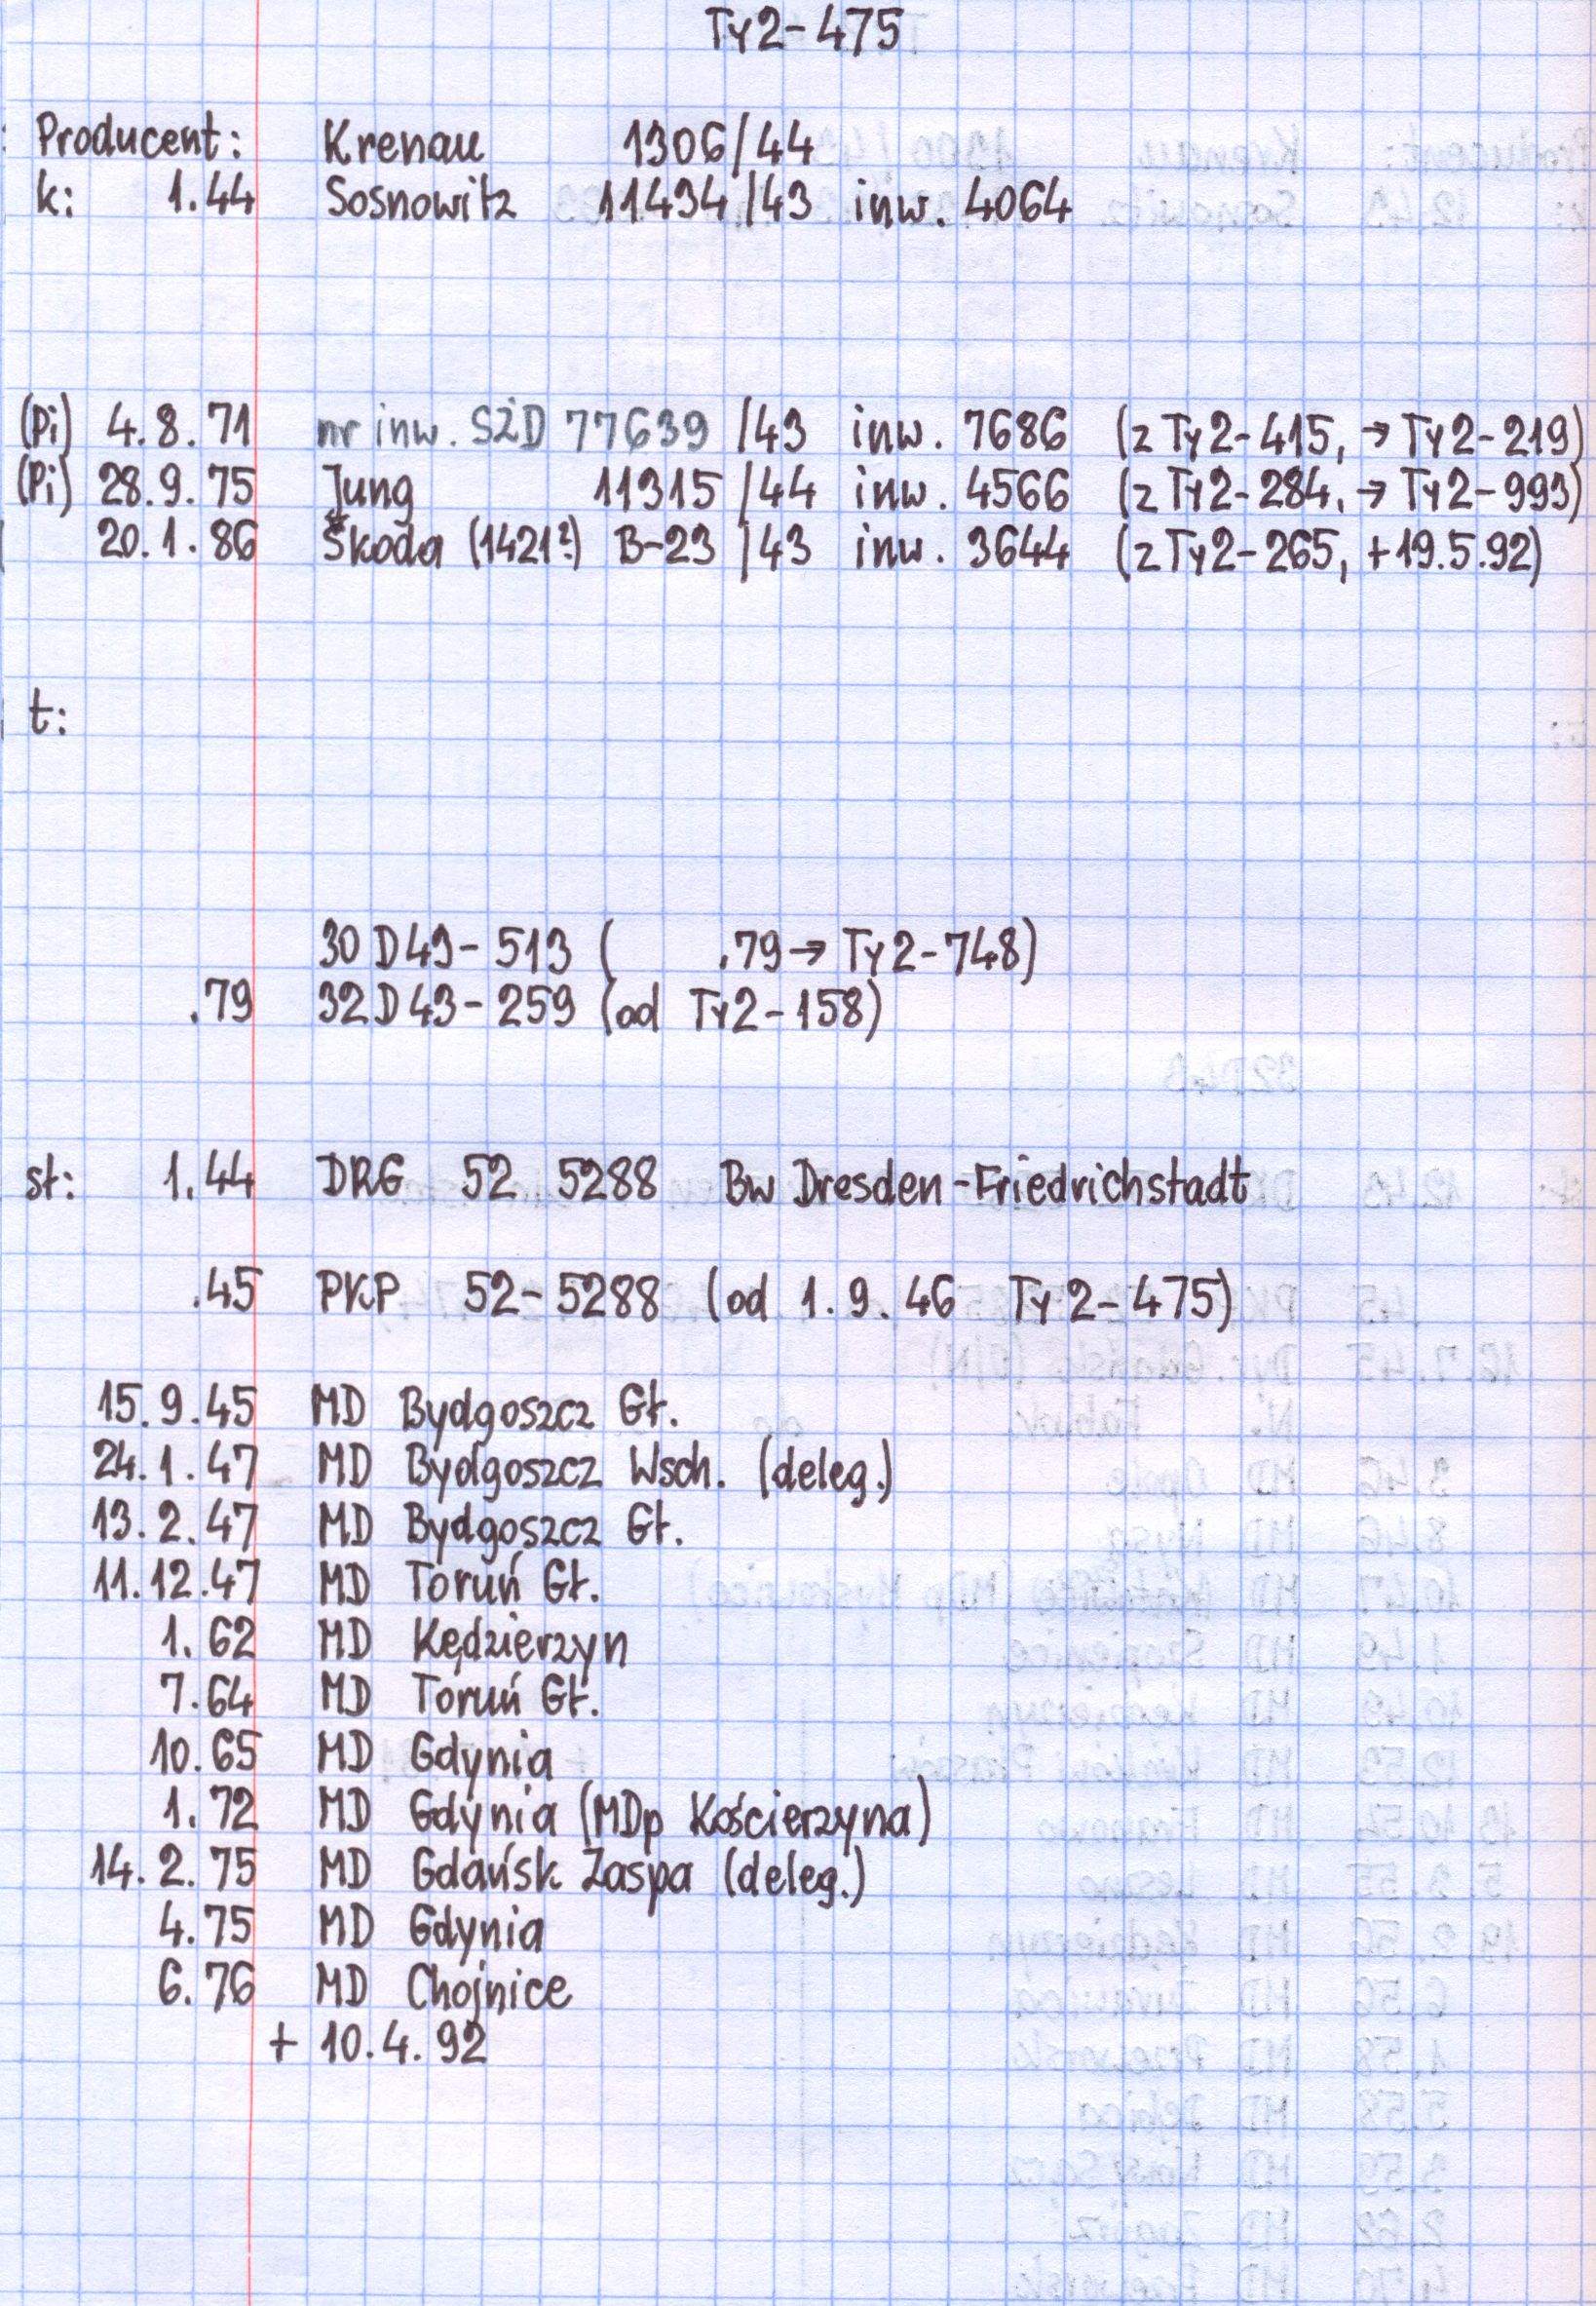 Ty2-475
Producent: Krenau 1306/44
k: 1.44 Sosnowitz 11434/43 inw. 4064
(Pi) 4.8.71 nr inw. SŻD 77639 /43 inw. 7686 (z Ty2-415, → Ty2-219)
(Pi) 28.9.75 Jung 11315/44 inw. 4566 (z Ty2-284, → Ty2-993)
20.1.86 Škoda (1421?) B-23/43 inw. 3644 (z Ty2-265, +19.5.92)
t:
30D43-513 ( .79 → Ty2-748)
.79 32D43-259 (od Ty2-158)
st: 1.44 DRG 52 5288 Bw Dresden-Friedrichstadt
.45 PKP 52-5288 (od 1.9.46 Ty2-475)
15.9.45 MD Bydgoszcz Gł.
24.1.47 MD Bydgoszcz Wsch. (deleg.)
13.2.47 MD Bydgoszcz Gł.
11.12.47 MD Toruń Gł.
1.62 MD Kędzierzyn
7.64 MD Toruń Gł.
10.65 MD Gdynia
1.72 MD Gdynia (MDp Kościerzyna)
14.2.75 MD Gdańsk Zaspa (deleg.)
4.75 MD Gdynia
6.76 MD Chojnice
+ 10.4.92